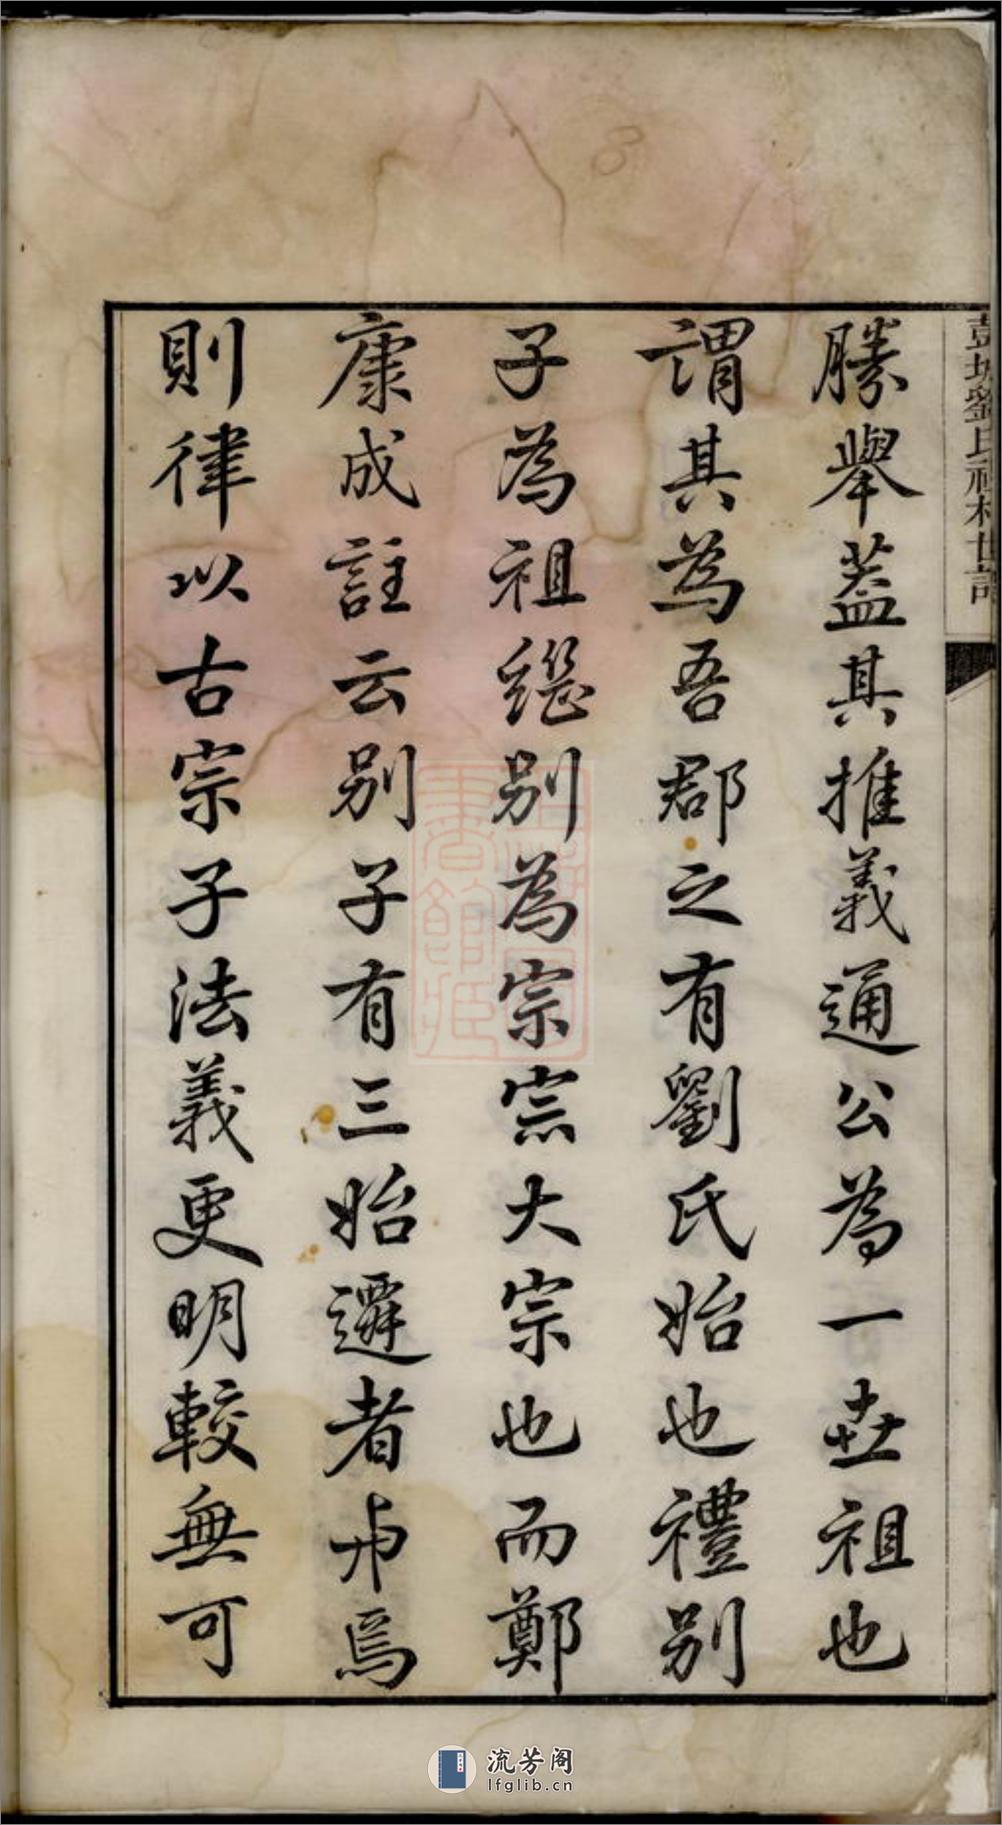 彭城劉氏祠村世譜
勝舉蓋其推義通公為一世祖也
謂其為吾郡之有劉氏始也禮別
子為祖繼別為宗宗大宗也而鄭
康成註云別子有三始遷者
則律以古宗子法義更明較無可
流芳阁
lfglib.cn